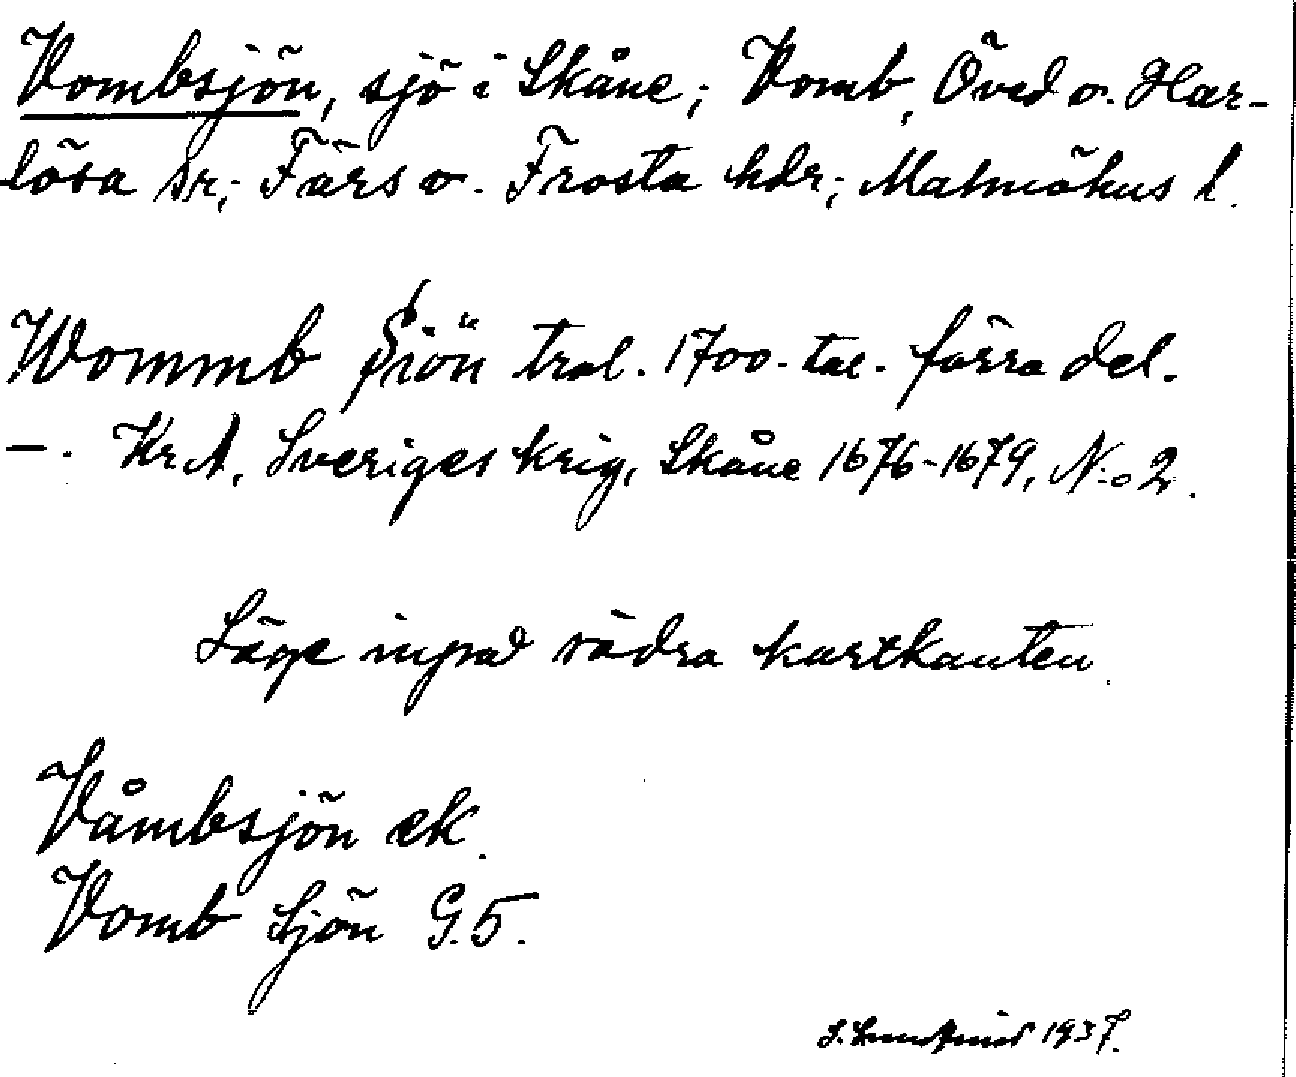 Vombsjön, sjö i Skåne; Vomb, Öved o. Har-
lösa sr; Färs o. Frosta hdr; Malmöhus l.
Wommb Siön trol. 1700-tal. förra del.
— . Kr.A. Sveriges krig, Skåne 1676-1679, N:o 2.
Läge invid södra kartkanten.
Våmbsjön ek.
Vomb Sjön G.5.
S. Lundqvist 1937.